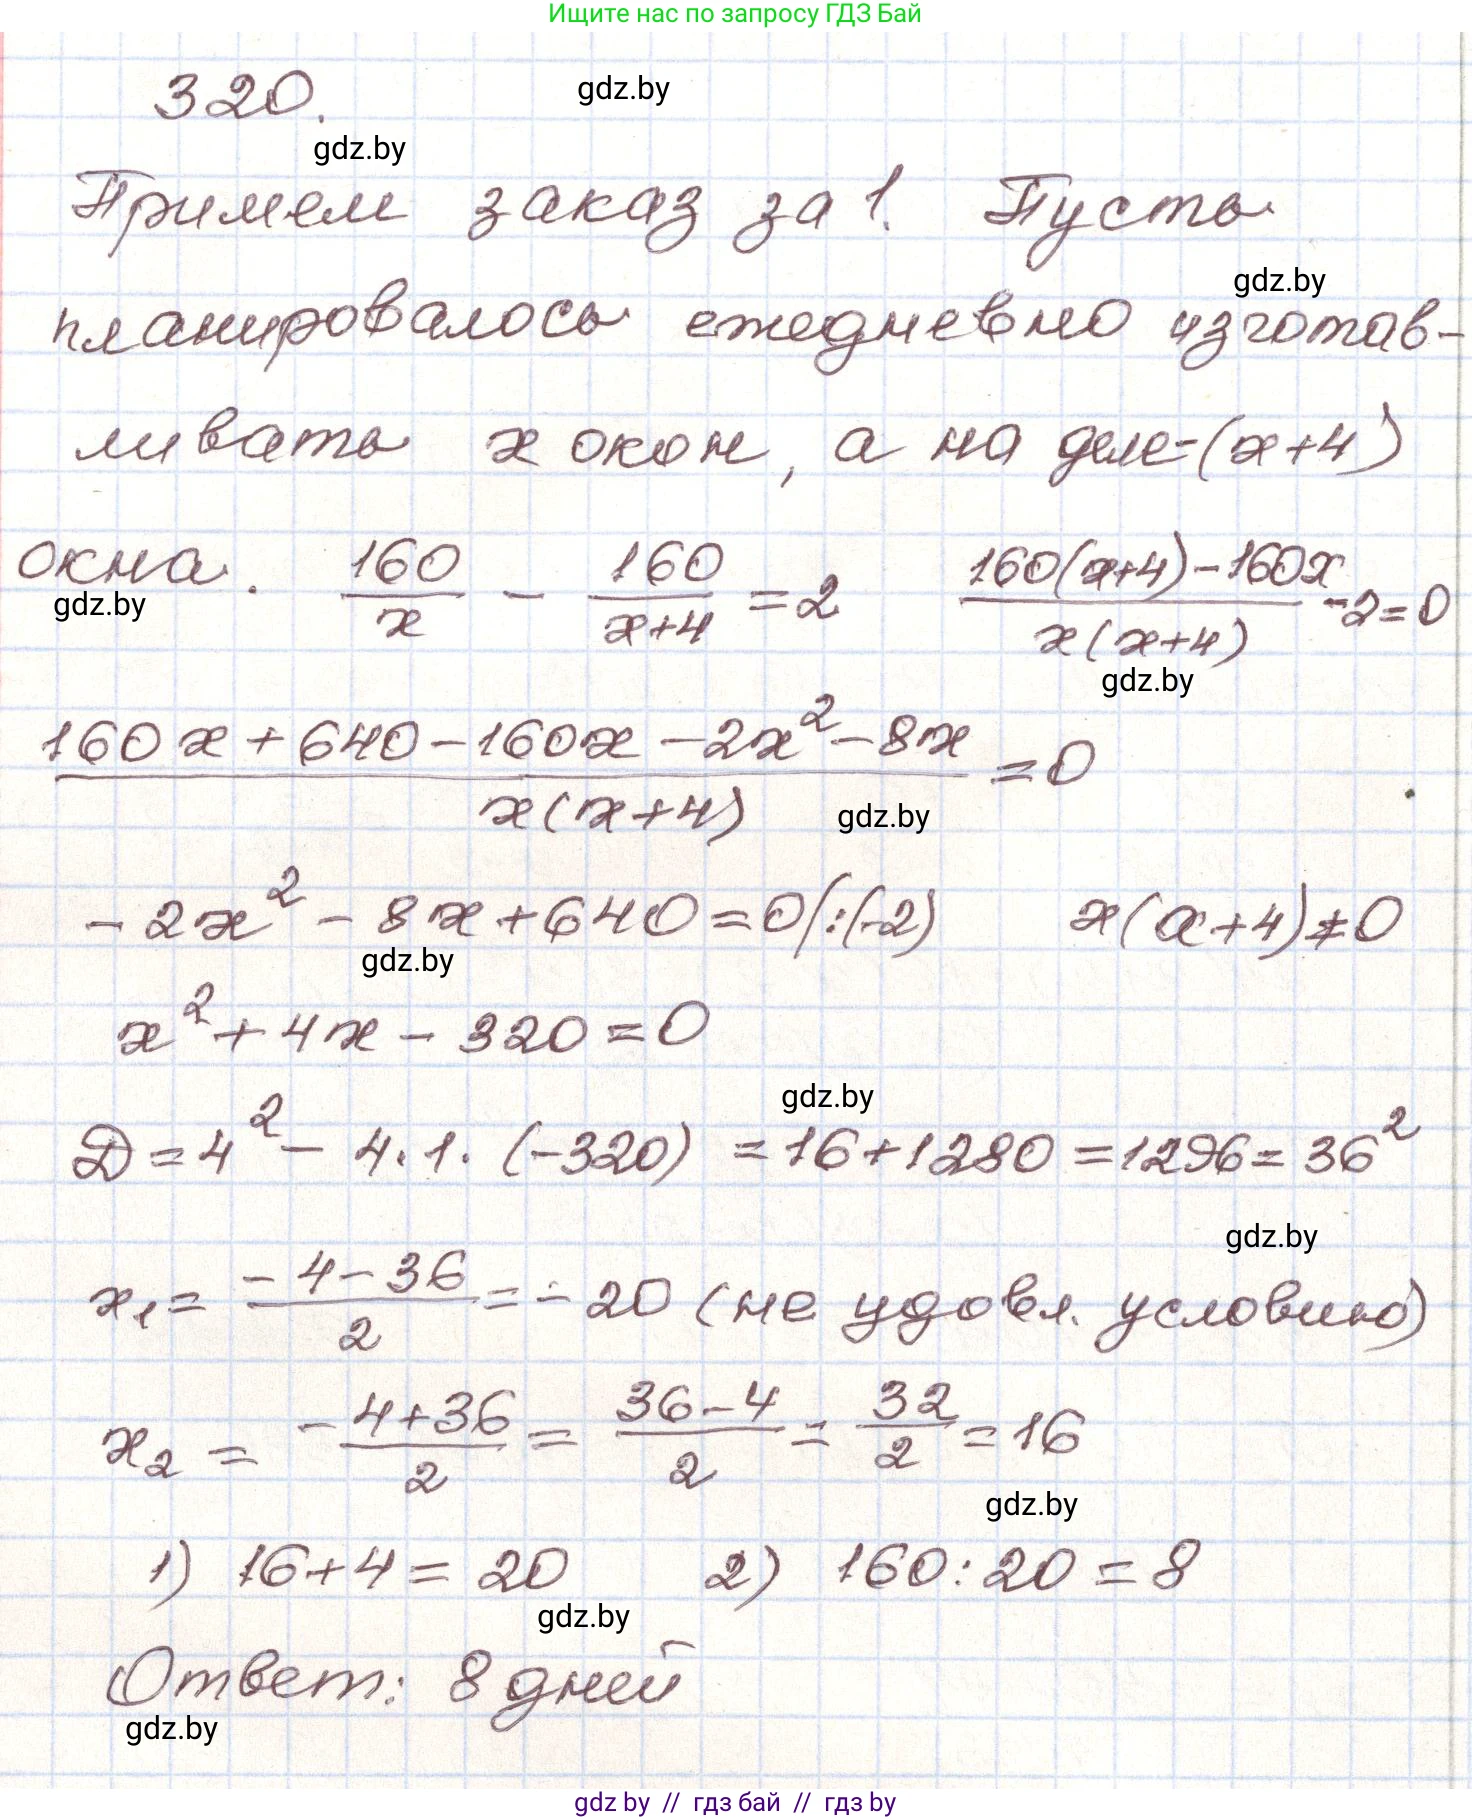 Ищите нас по запросу ГДЗ Бай
320.
gdz.by
gdz.by
Примем заказ за 1. Пусть
gdz.by
планировалось ежедневно изготав-
ливать x окон, а на деле-(x+4)
окна. 160/x - 160/(x+4) = 2 (160(x+4)-160x)/(x(x+4)) -2=0
gdz.by
gdz.by
(160x+640-160x-2x²-8x)/(x(x+4)) =0
gdz.by
-2x²-8x+640=0|:(-2) x(x+4)≠0
gdz.by
x²+4x-320=0
gdz.by
Д=4²-4·1·(-320) =16+1280=1296=36²
gdz.by
x₁= (-4-36)/2 =-20 (не удовл. условию)
x₂ = (-4+36)/2 = (36-4)/2 = 32/2 =16
gdz.by
1) 16+4=20 2) 160:20=8
gdz.by
Ответ: 8 дней
gdz.by
gdz by // гдз бай // гдз by